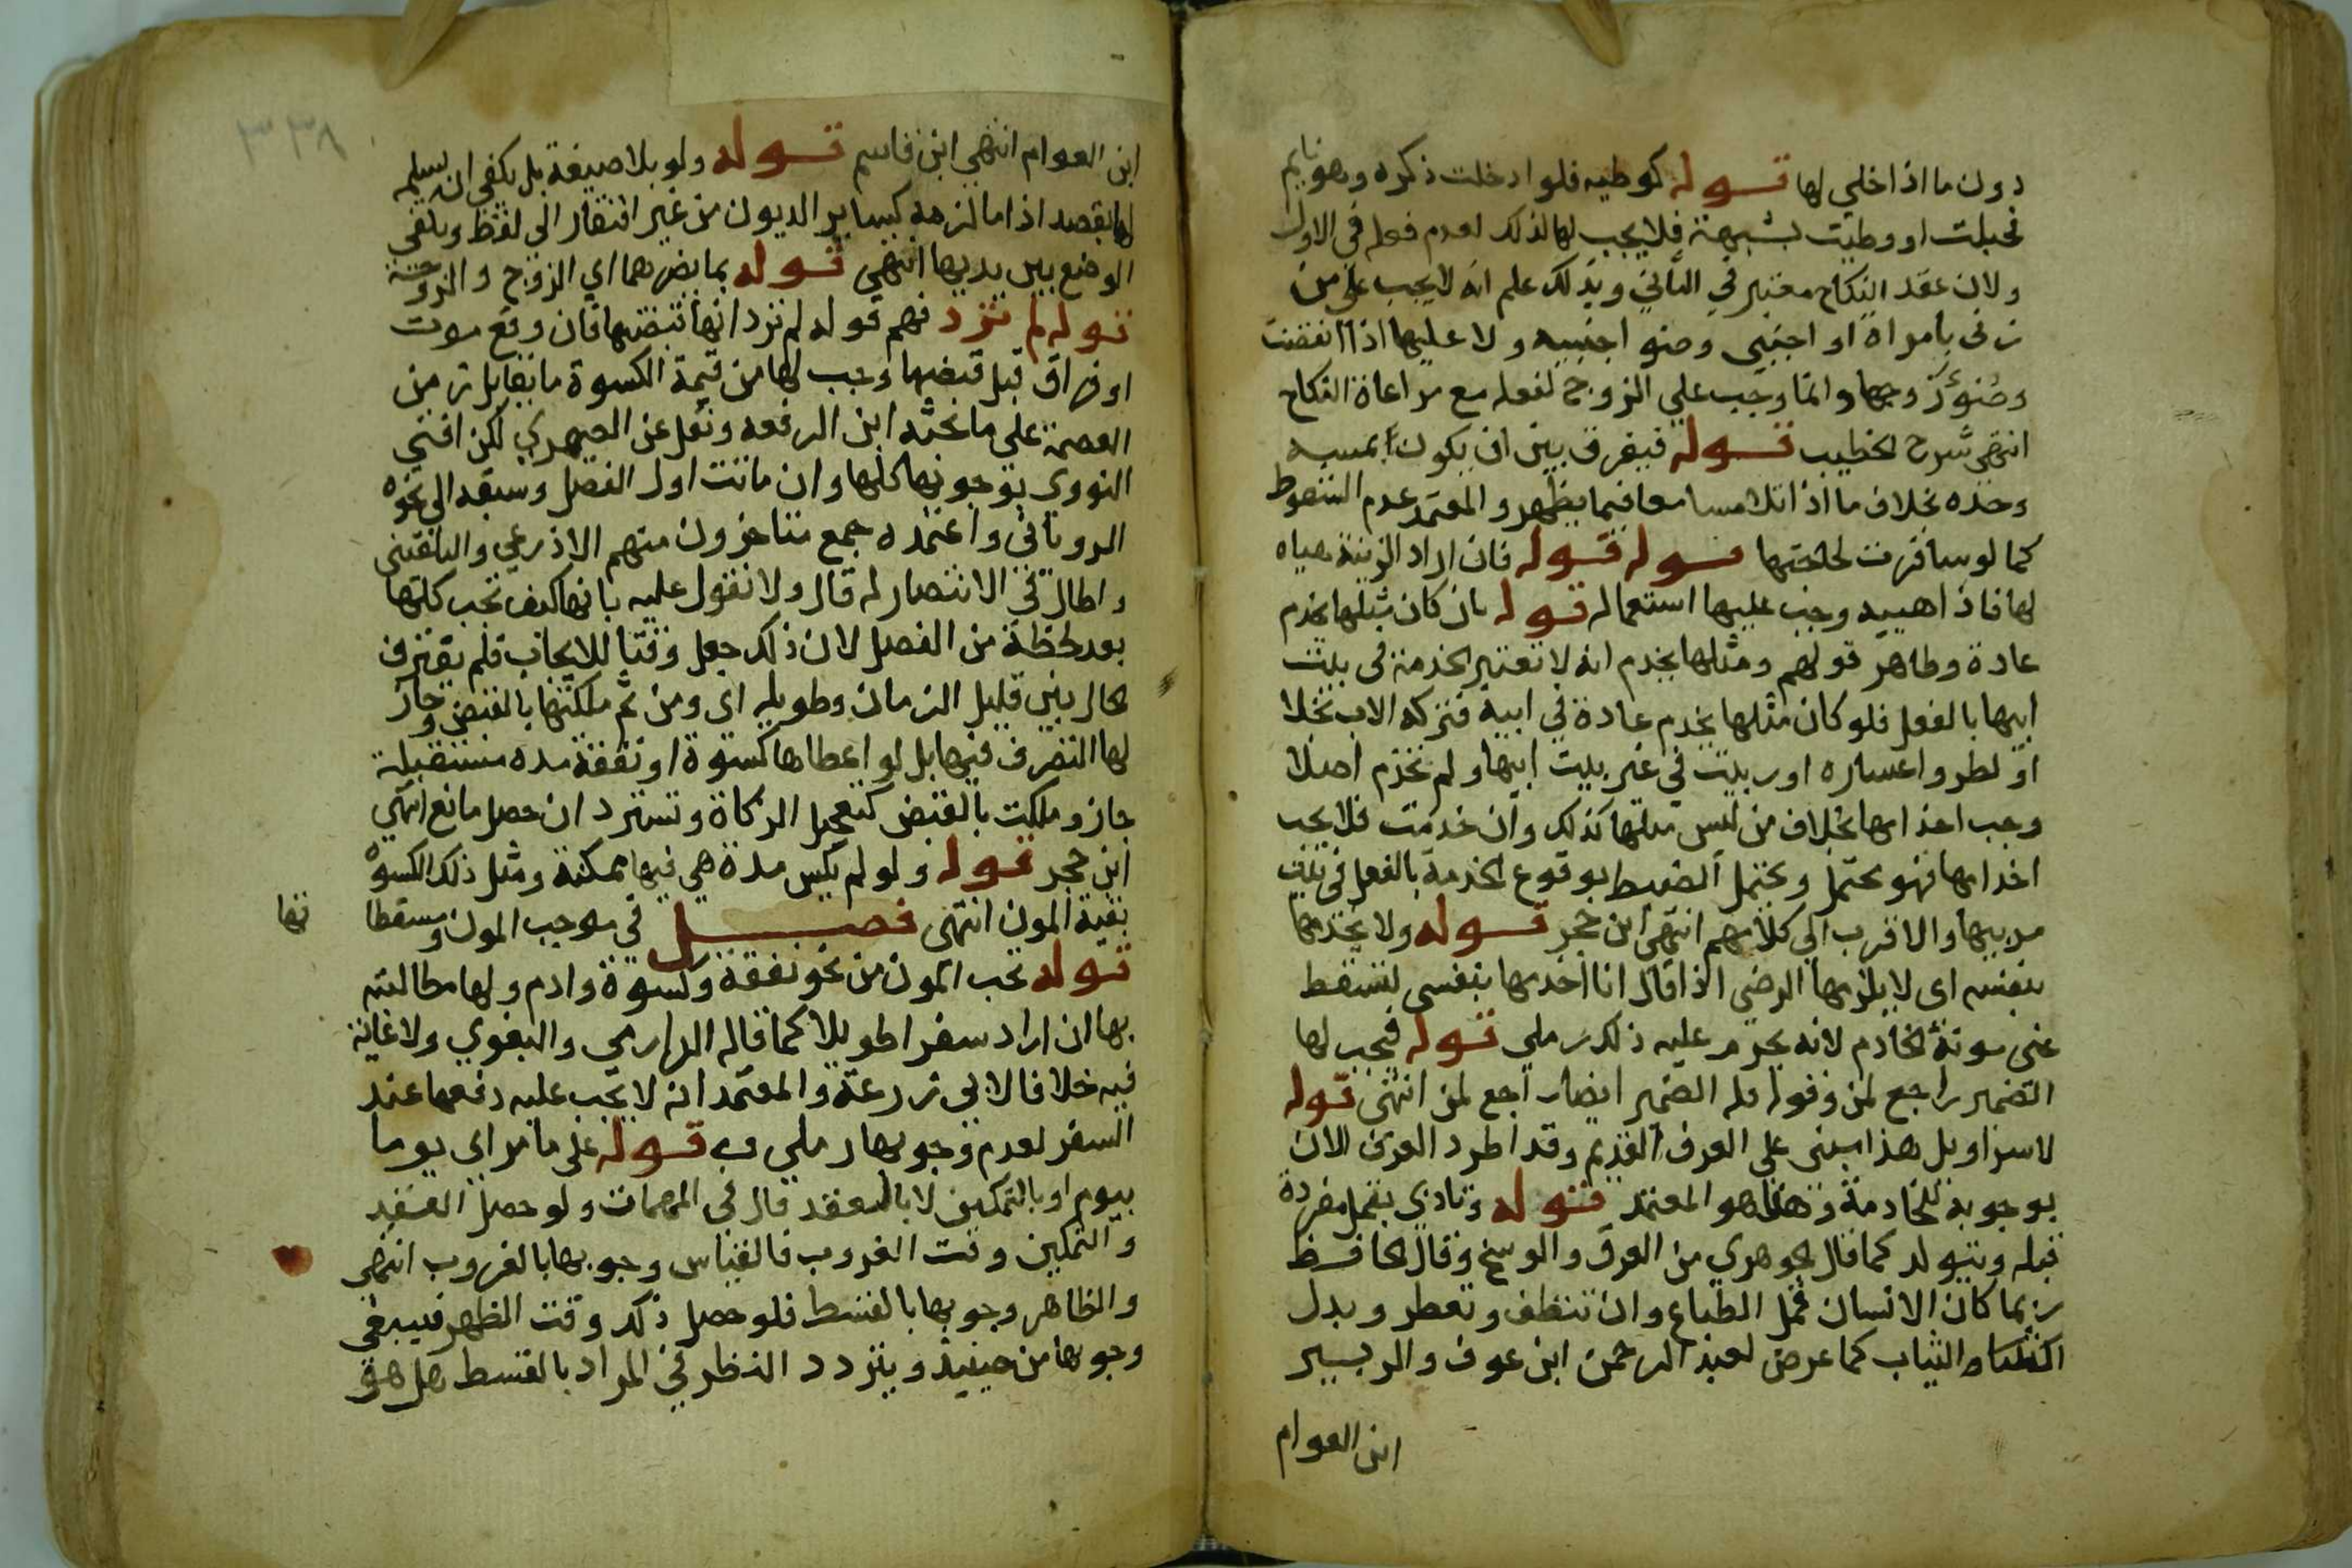 دون ما اذا خلي لها قوله كوطيه فلو ادخلت ذكره وهو نايم
فحبلت او وطيت بشبهة فلا يجب لها لذلك لعدم فعله في الاول
ولان عقد النكاح معتبر في الثاني وبذلك علم انه لا يجب على من
زنى بامراة او اجنبي وضوء اجنبيه ولا عليها اذا انقضت
وضوء زوجها وانما وجب على الزوج لفعله مع مراعاة النكاح
انتهى شرح الخطيب قوله فيفرق بين ان يكون بمسه
وحده بخلاف ما اذا تلامسا معا فيما يظهر والمعتمد عدم السقوط
كما لو سافرت لحاجتها قوله قوله فان اراد الزينة هياه
لها فاذا هييه وجب عليها استعماله قوله بان كان مثلها يخدم
عادة وظاهر قولهم ومثلها يخدم انه لا تعتبر الخدمة في بيت
ابيها بالفعل فلو كان مثلها يخدم عادة في ابيه فتركه الاب بخلا
او لطرو اعساره او ربيت في غير بيت ابيها ولم تخدم اصلا
وجب اخدامها بخلاف من ليس مثلها كذلك وان خدمت فلا يجب
اخدامها فهو محتمل ويحتمل الضبط بوقوع الخدمة بالفعل في بيت
مربيها والاقرب الى كلامهم انتهى ابن حجر قوله ولا يخدمها
بنفسه اى لا يلزمها الرضى اذا قال انا اخدمها بنفسي لتسقط
عنى مونة الخادم لانه يحرم عليه ذلك رملي قوله فيجب لها
الضمير راجع لمن وقوله فله الضمير ايضا راجع لمن انتهى قوله
لا سراويل هذا مبنى على العرف القديم وقد اطرد العرف الان
بوجوبه للخادمة وهذا هو المعتمد قوله وتاذي بقمل مفرده
قمله ويتولد كما قال الجوهري من العرق والوسخ وقال الحافظ
ربما كان الانسان قمل الطباع وان تنظف وتعطر وبدل
الثياب كما عرض لعبد الرحمن ابن عوف والزبير
ابن العوام
٣٣٨
ابن العوام انتهى ابن قاسم قوله ولو بلا صيغة بل يكفي ان يسلمه
لها بقصد اذا ما لزمه كساير الديون من غير افتقار الى لفظ ويكفي
الوضع بين يديها انتهى قوله بما يضرهما اي الزوج والزوجة
قوله لم ترد فهم قوله لم ترد انها تقبضها فان وقع موت
او فراق قبل قبضها وجب لها من قيمة الكسوة ما يقابل زمن
العصمة على ما بحثه ابن الرفعه ونقل عن الصيمري لكن افتى
النووي بوجوبها كلها وان ماتت اول الفصل وسبقه الى نحوه
الروياني واعتمده جمع متاخرون منهم الاذرعي والبلقيني
واطال في الانتصار له قال ولا نقول عليه بانها كيف تجب كلها
بعد لحظة من الفصل لان ذلك جعل وقتا للايجاب فلم يفترق
الحال بين قليل الزمان وطويله اى ومن ثم ملكتها بالقبض وجاز
لها التصرف فيها بل لو اعطاها كسوة او نفقة مدة مستقبلة
جاز وملكت بالقبض كتعجيل الزكاة وتسترد ان حصل مانع انتهى
ابن حجر قوله ولو لم يكس مدة هي فيها ممكنة ومثل ذلك الكسوة
بقية المون انتهى فصل في موجب المون ومسقطا تها
قوله تجب المون من نحو نفقة وكسوة وادم ولها مطالبته
بها ان اراد سفرا طويلا كما قاله الدارمي والبغوي ولا غاية
فيه خلافا لابي زرعة والمعتمد انه لا يجب عليه دفعها عند
السفر لعدم وجوبها رملي قوله على ما مر اي يوما
بيوم او بالتمكين لا بالعقد قال في المهمات ولو حصل العقد
والتمكين وقت الغروب فالقياس وجوبها بالغروب انتهى
والظاهر وجوبها بالقسط فلو حصل ذلك وقت الظهر فينبغي
وجوبها من حينيذ ويتردد النظر في المراد بالقسط هل هو